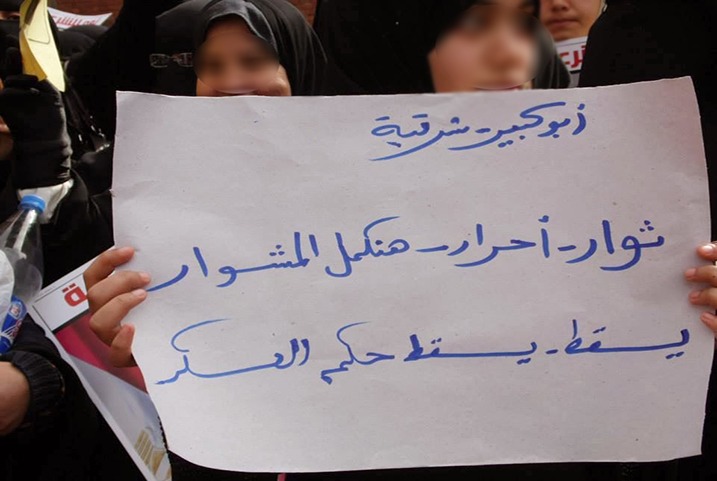 أبو كبير شرقية
ثوار - أحرار - هنكمل المشوار
يسقط - يسقط حكم العسكر